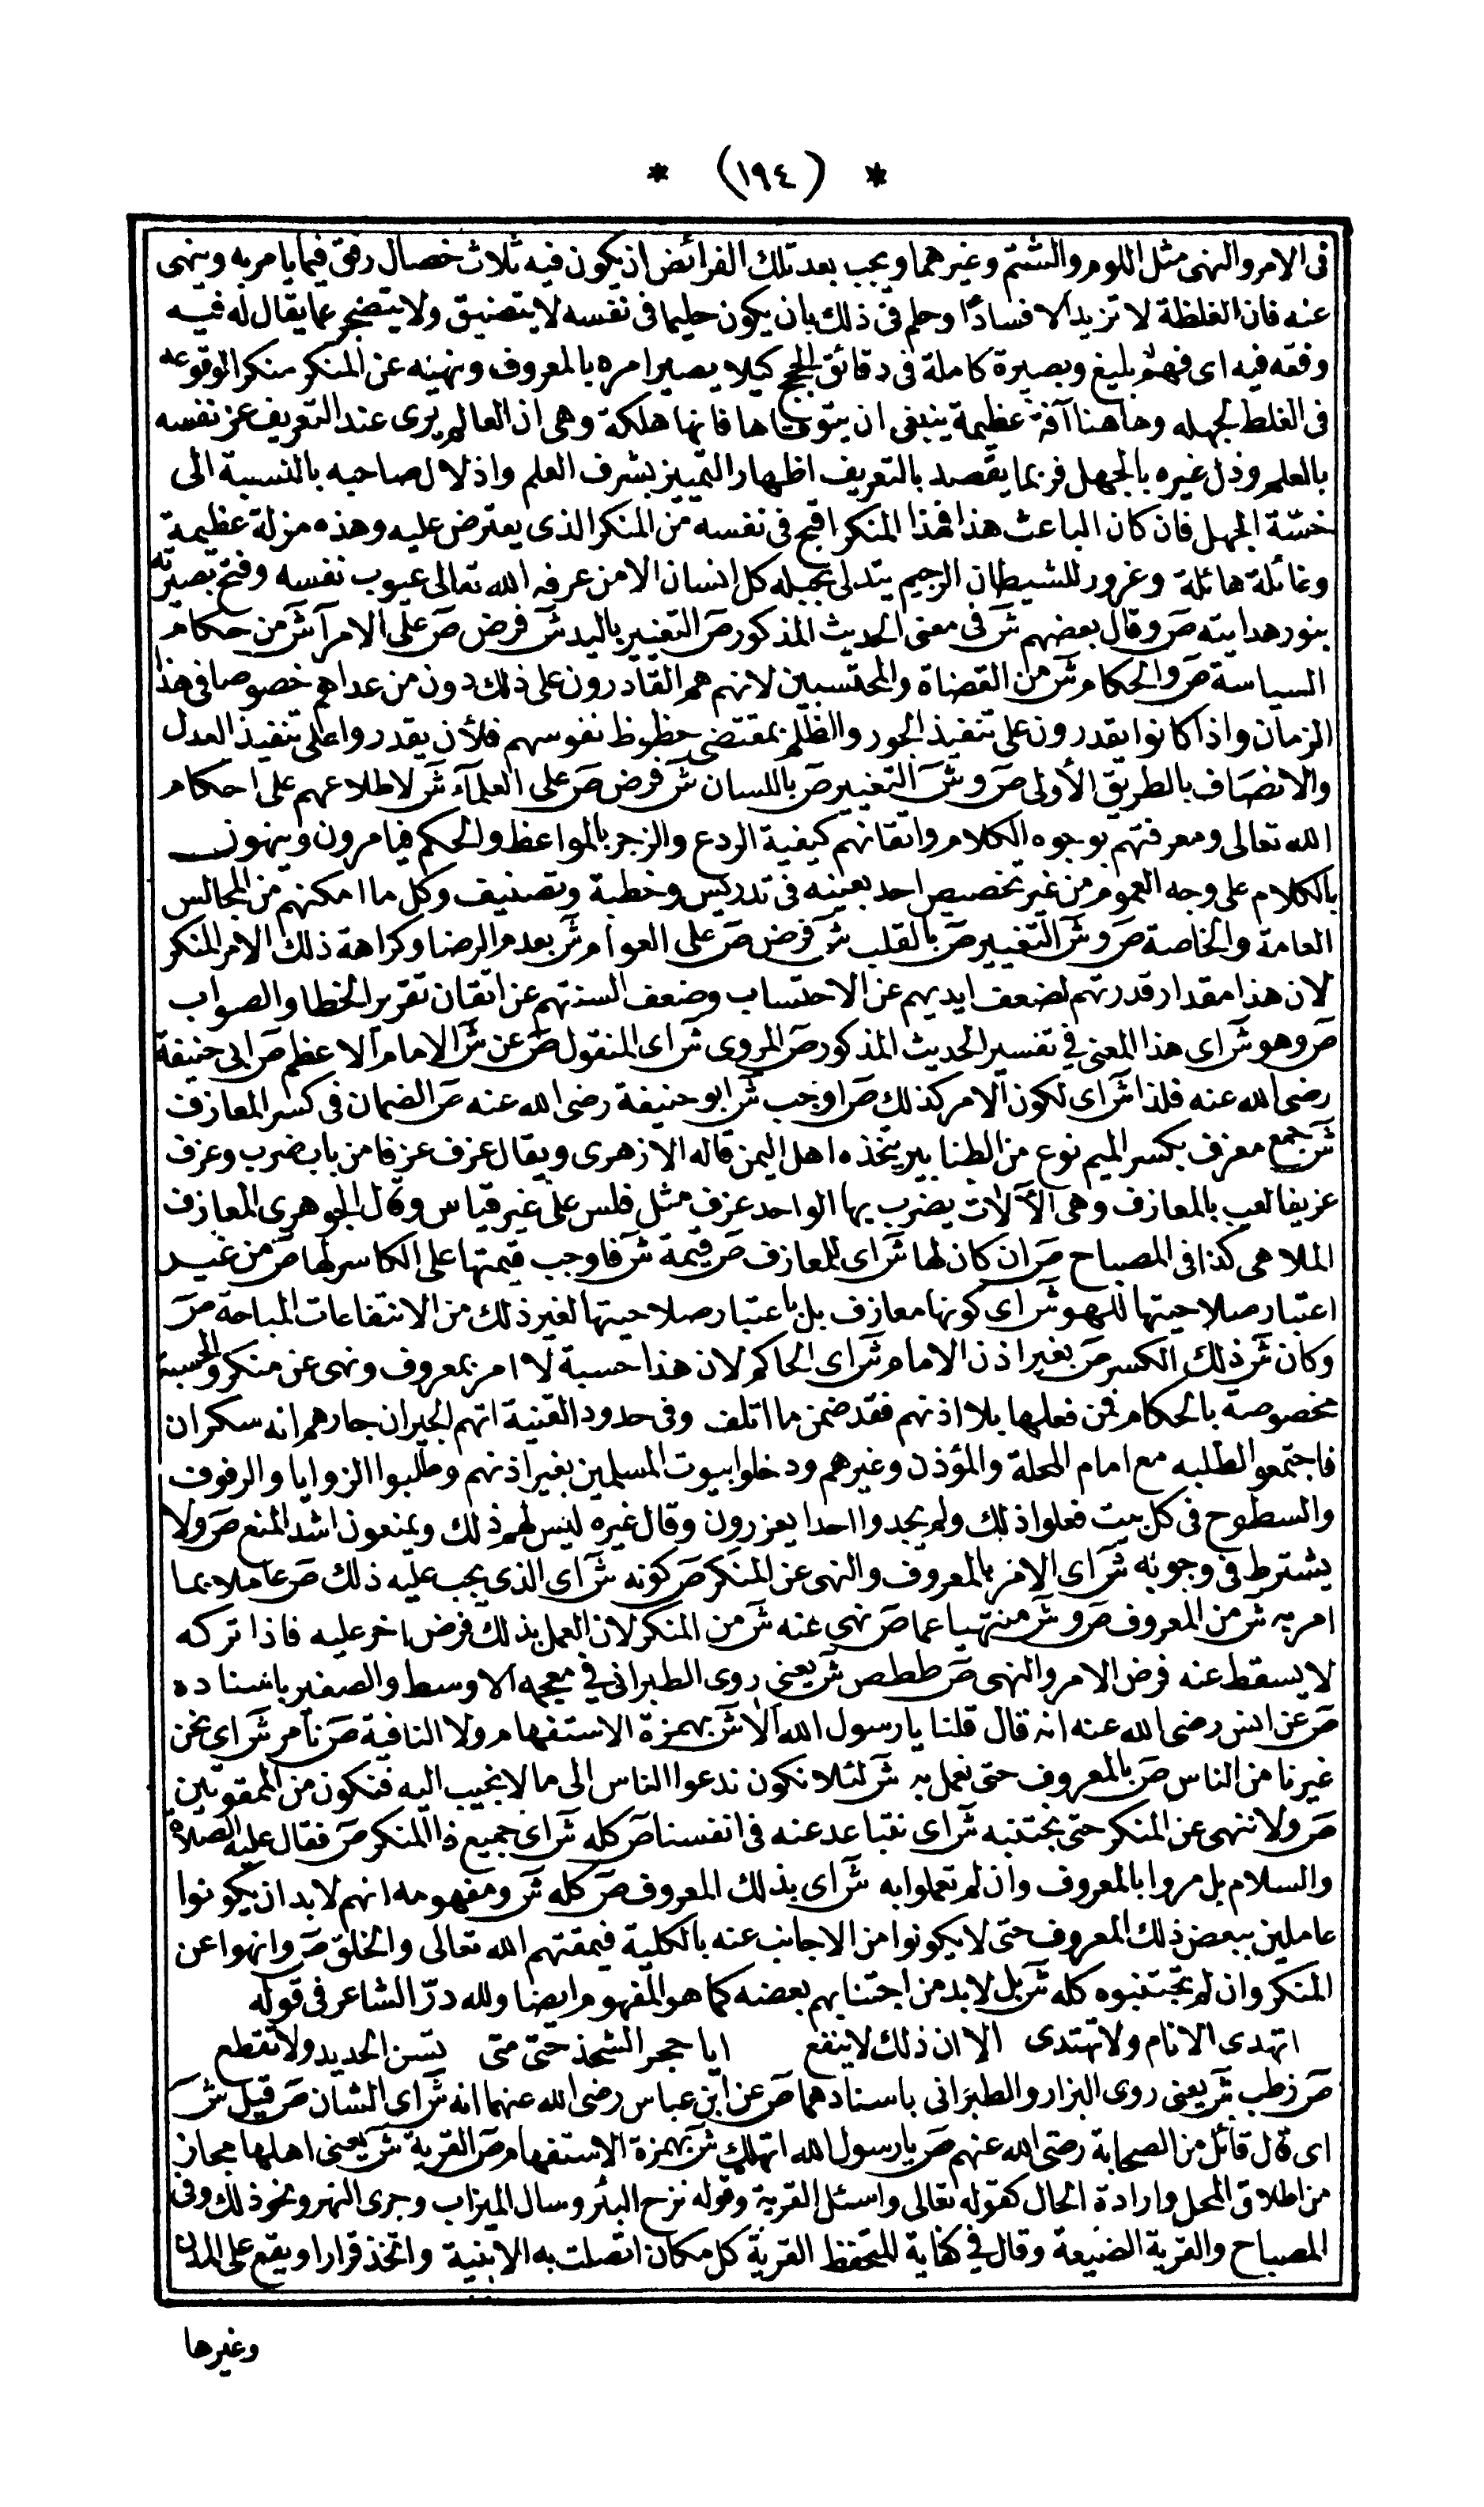 * (١٩٤) *
فى الامر والنهى مثل اللوم والشتم وغيرهما ويجب بعد تلك الفرائض ان يكون فيه ثلاث خصال رفق فيما يامر به وينهى
عنه فان الغلظة لا تزيد الا فسادًا وحلم فى ذلك بان يكون حليما فى نفسه لا يتضيق ولا يتضجر عما يقال له فيه
وفقه فيه اى فهم بليغ وبصيرة كاملة فى دقائق الحجج كيلا يصير امره بالمعروف ونهيه عن المنكر منكرا لوقوعه
فى الغلط لجهله وهاهنا آفة عظيمة ينبغى ان يتوقاها فانها هلكة وهى ان العالم يرى عند التعريف عز نفسه
بالعلم وذل غيره بالجهل فربما يقصد بالتعريف اظهار التمييز بشرف العلم واذلال صاحبه بالنسبة الى
خسّة الجهل فان كان الباعث هذا فهذا المنكر اقبح فى نفسه من المنكر الذى يعترض عليه وهذه مزلة عظيمة
وغائلة هائلة وغرور للشيطان الرجيم يتدلى بحبله كل انسان الا من عرفه الله تعالى عيوب نفسه وفتح بصيرته
بنور هدايته صَ وقال بعضهم شَ فى معنى الحديث المذكور صَ التغيير باليد شَ فرض صَ على الامرآ شَ من حكام
السياسة صَ والحكام شَ من القضاة والمحتسبين لانهم هم القادرون على ذلك دون من عداهم خصوصا فى هذا
الزمان واذا كانوا يقدرون على تنفيذ الجور والظلم بمقتضى حظوظ نفوسهم فلأن يقدروا على تنفيذ العدل
والانصاف بالطريق الأولى صَ و شَ التغيير صَ باللسان شَ فرض صَ على العلمآء شَ لاطلاعهم على احكام
الله تعالى ومعرفتهم بوجوه الكلام واتقانهم كيفية الردع والزجر بالمواعظ والحكم فيامرون وينهون
بالكلام على وجه العموم من غير تخصيص احد بعينه فى تدريس وخطبة وتصنيف وكل ما امكنهم من المجالس
العامة والخاصة صَ و شَ التغيير صَ بالقلب شَ فرض صَ على العوام شَ بعدم الرضا وكراهة ذلك الامر المنكر
لان هذا مقدار قدرتهم لضعف ايديهم عن الاحتساب وضعف السنتهم عن اتقان تقرير الخطا والصواب
صَ وهو شَ اى هذا المعنى فى تفسير الحديث المذكور صَ المروى شَ اى المنقول صَ عن شَ الامام الاعظم صَ ابى حنيفة
رضى الله عنه فلذا شَ اى لكون الامر كذلك صَ اوجب شَ ابو حنيفة رضى الله عنه صَ الضمان فى كسر المعازف
شَ جمع معزف بكسر الميم نوع من الطنابير يتخذه اهل اليمن قاله الازهرى ويقال عزف عزفا من باب ضرب وعزف
عزيفا لعب بالمعازف وهى الآلات يضرب بها الواحد عزف مثل فلس على غير قياس وقال الجوهرى المعازف
الملاهى كذا فى المصباح صَ ان كان لها شَ اى للمعازف صَ قيمة شَ فاوجب قيمتها على الكاسر لها صَ من غير
اعتبار صلاحيتها للهو شَ اى كونها معازف بل باعتبار صلاحيتها لغير ذلك من الانتفاعات المباحة صَ
وكان شَ ذلك الكسر صَ بغير اذن الامام شَ اى الحاكم لان هذا حسبة لا امر بمعروف ونهى عن منكر والحسبة
مخصوصة بالحكام فمن فعلها بلا اذنهم فقد ضمن ما اتلف وفى حدود القنية اتهم الجيران جارهم انه سكران
فاجتمعوا لطلبه مع امام المحلة والمؤذن وغيرهم ودخلوا بيوت المسلمين بغير اذنهم وطلبوا الزوايا والرفوف
والسطوح فى كل بيت فعلوا ذلك ولم يجدوا احدا يعزرون وقال غيره ليس لهم ذلك ويمنعون اشد المنع صَ ولا
يشترط فى وجوبه شَ اى الامر بالمعروف والنهى عن المنكر صَ كونه شَ اى الذى يجب عليه ذلك صَ عاملا بما
امر به شَ من المعروف صَ و شَ منتهيا عما صَ نهى عنه شَ من المنكر لان العمل بذلك فرض اخر عليه فاذا تركه
لا يسقط عنه فرض الامر والنهى صَ ططص شَ يعنى روى الطبرانى فى معجمه الاوسط والصغير باسناده
صَ عن انس رضى الله عنه انه قال قلنا يا رسول الله الا شَ بهمزة الاستفهام ولا النافية صَ نأمر شَ اى نحن
غيرنا من الناس صَ بالمعروف حتى نعمل به شَ لئلا نكون ندعوا الناس الى ما لا نجيب اليه فنكون من الممقوتين
صَ ولا ننهى عن المنكر حتى نجتنبه شَ اى نتباعد عنه فى انفسنا صَ كله شَ اى جميع ذا المنكر صَ فقال عليه الصلاة
والسلام بل مروا بالمعروف وان لم تعملوا به شَ اى بذلك المعروف صَ كله شَ ومفهومه انهم لا بد ان يكونوا
عاملين ببعض ذلك المعروف حتى لا يكونوا من الاجانب عنه بالكلية فيمقتهم الله تعالى والخلق صَ وانهوا عن
المنكر وان لم تجتنبوه كله شَ بل لا بد من اجتنابهم بعضه كما هو المفهوم ايضا ولله درّ الشاعر فى قوله
اتهدى الانام ولا تهتدى الا ان ذلك لا ينفع ايا حجر الشحذ حتى متى تسن الحديد ولا تقطع
صَ زطب شَ يعنى روى البزار والطبرانى باسنادهما صَ عن ابن عباس رضى الله عنهما انه شَ اى الشان صَ قيل شَ
اى قال قائل من الصحابة رضى الله عنهم صَ يا رسول الله اتهلك شَ بهمزة الاستفهام صَ القرية شَ يعنى اهلها مجاز
من اطلاق المحل وارادة الحال كقوله تعالى واسئل القرية وقوله نزح البئر وسال الميزاب وجرى النهر ونحو ذلك وفى
المصباح والقرية الضيعة وقال فى كفاية المتحفظ القرية كل مكان اتصلت به الابنية واتخذ قرارا ويقع على المدن
وغيرها